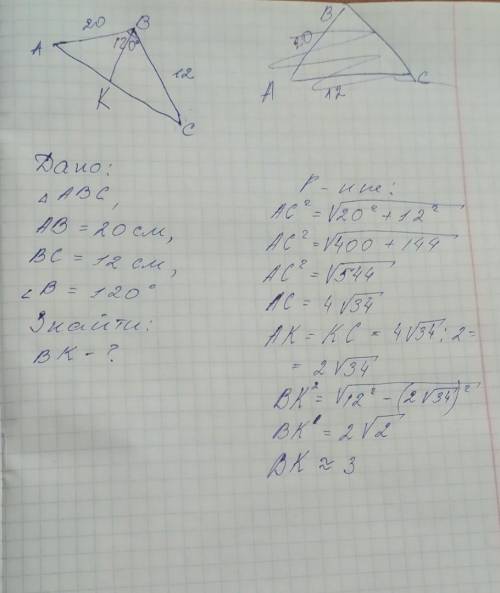 20
B
A
120°
12
K
C
B
20
A
12
C
Дано:
△ABC,
AB = 20 см,
BC = 12 см,
∠B = 120°
Знайти:
BK - ?
Р-ння:
AC² = √20² + 12²
AC² = √400 + 144
AC² = √544
AC = 4√34
AK = KC = 4√34 : 2 =
= 2√34
BK² = √12² - (2√34)²
BK² = 2√2
BK ≈ 3